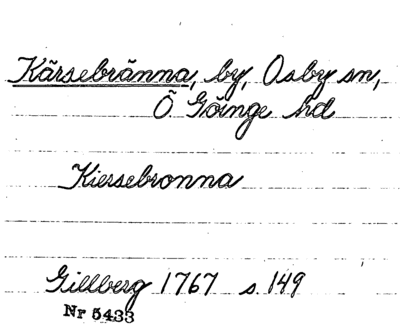 Kärsebränna, by, Osby sn,
Ö. Göinge hd
Kiersebronna
Gillberg 1767 s. 149
Nr 5433